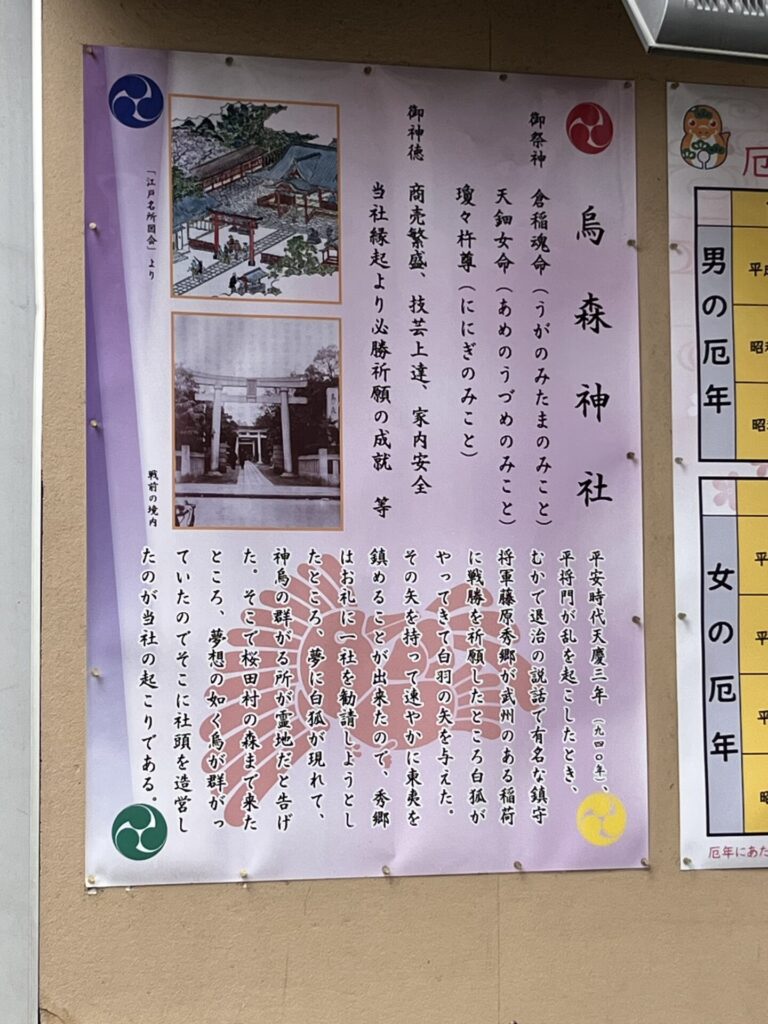 烏森神社
御祭神 倉稲魂命(うがのみたまのみこと)
天鈿女命(あめのうづめのみこと)
瓊々杵尊(ににぎのみこと)
御神徳 商売繁盛、技芸上達、家内安全
当社縁起より必勝祈願の成就 等
「江戸名所図会」より
戦前の境内
平安時代天慶三年(九四〇年)、
平将門が乱を起こしたとき、
むかで退治の説話で有名な鎮守
将軍藤原秀郷が武州のある稲荷
に戦勝を祈願したところ白狐が
やってきて白羽の矢を与えた。
その矢を持って速やかに東夷を
鎮めることが出来たので、秀郷
はお礼に一社を勧請しようとし
たところ、夢に白狐が現れて、
神烏の群がる所が霊地だと告げ
た。そこで桜田村の森まで来た
ところ、夢想の如く烏が群がっ
ていたのでそこに社頭を造営し
たのが当社の起こりである。
厄
男の厄年
平成
昭和
昭
女の厄年
平
平
平
昭
厄年にあた